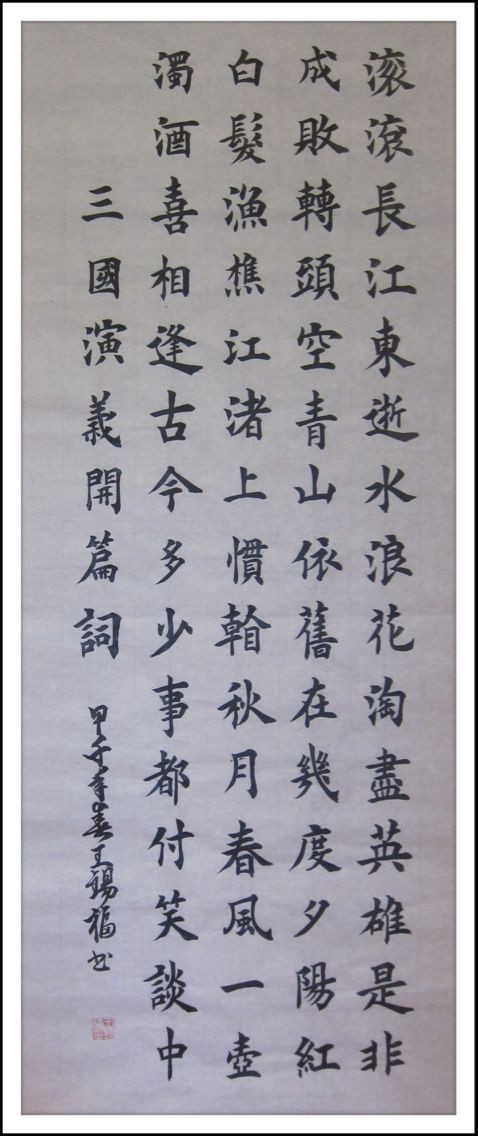 滚滾長江東逝水浪花淘盡英雄是非
成敗轉頭空青山依舊在幾度夕陽紅
白髮漁樵江渚上慣看秋月春風一壺
濁酒喜相逢古今多少事都付笑談中
三國演義開篇詞
甲午年春王錫福书